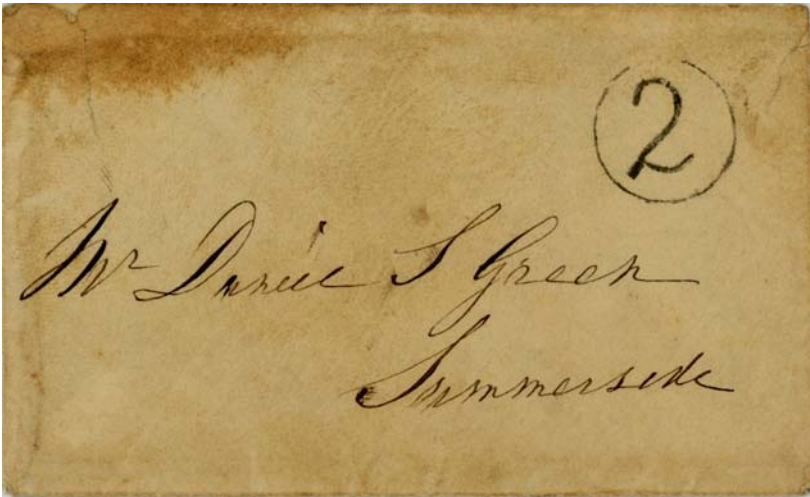 2
Mr Daniel S Green
Summerside